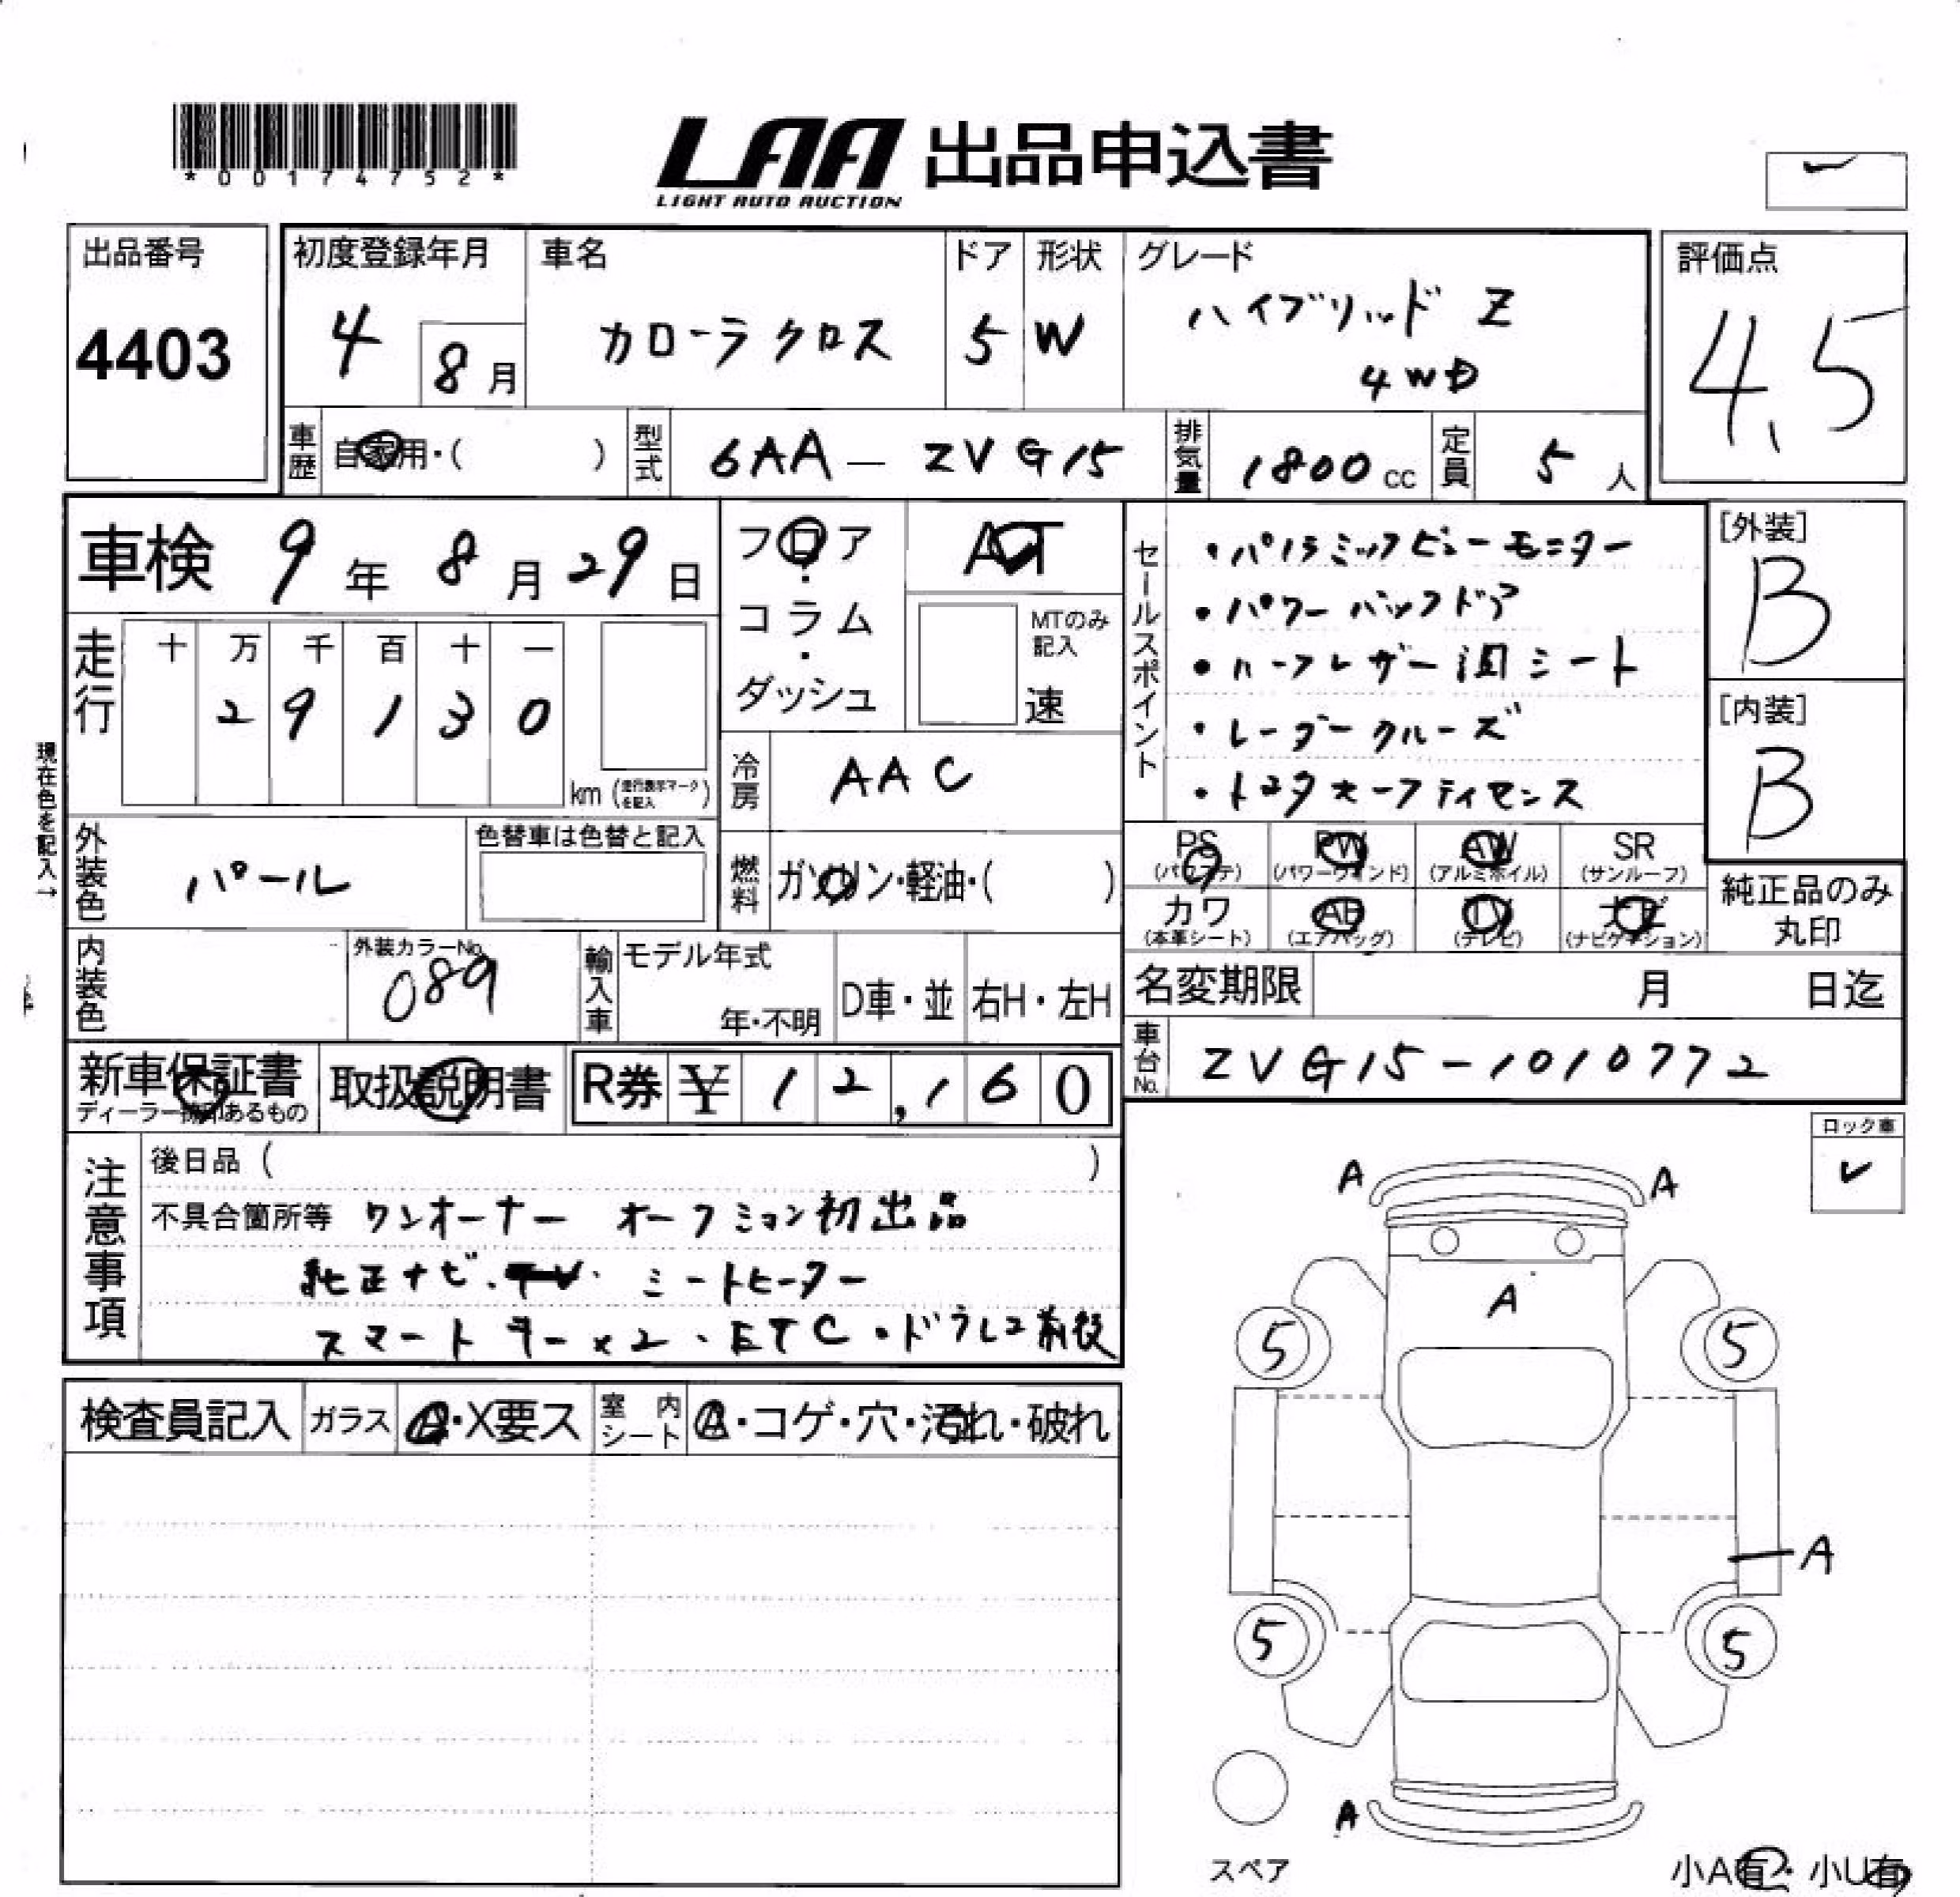 *00174752*
LAA 出品申込書
LIGHT AUTO AUCTION
出品番号
4403
初度登録年月
4
8月
車名
カローラクロス
ドア
5
形状
W
グレード
ハイブリッド Z
4WD
評価点
4.5
車歴
自家用・( )
型式
6AA - ZVG15
排気量
1800cc
定員
5人
車検 9年 8月 29日
フロア・コラム・ダッシュ
AT
MTのみ記入
速
走行
十 万 千 百 十 一
2 9 1 3 0
km (走行表示マークを記入)
現在色を記入→
冷房
AAC
外装色
パール
色替車は色替と記入
燃料
ガソリン・軽油・( )
内装色
外装カラーNo.
089
輸入車
モデル年式
年・不明
D車・並
右H・左H
セールスポイント
・パノラミックビューモニター
・パワーバックドア
・ハーフレザー調シート
・レーダークルーズ
・トヨタセーフティセンス
[外装]
B
[内装]
B
PS (パワステ)
PW (パワーウィンド)
AW (アルミホイル)
SR (サンルーフ)
カワ (本革シート)
AB (エアバッグ)
TV (テレビ)
ナビ (ナビゲーション)
純正品のみ丸印
名変期限 月 日迄
車台No.
ZVG15-1010772
新車保証書
ディーラー捺印あるもの
取扱説明書
R券 ¥12,160
注意事項
後日品 ( )
不具合箇所等 ワンオーナー オークション初出品
純正ナビ・ シートヒーター
スマートキー×2・ETC・ドラレコ前後
検査員記入
ガラス
A・X要ス
室内シート
A・コゲ・穴・汚れ・破れ
ロック車
A A
A
5 5
A
5 5
A
スペア
小A有・小U有